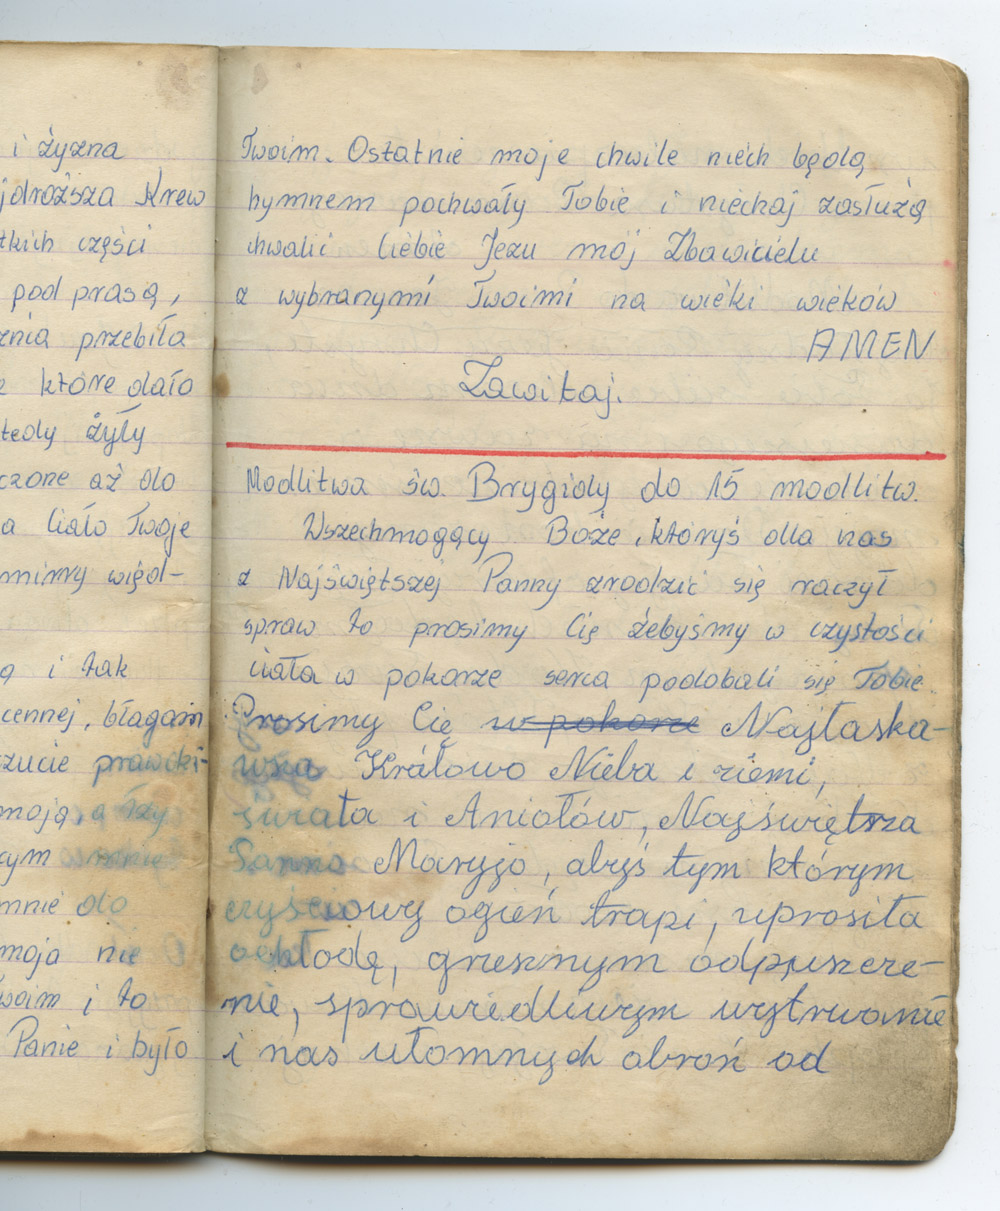 i żyzna
jdroższa Krew
tkich części
pod prasą,
znia przebiła
które dało
tedy żyły
czone aż do
a Ciało Twoje
mimy więd-
i tak
cennej, błagam
zucie prawdzi-
moją, a łzy
cym
mnie do
moja nie
Twoim i to
Panie i było
Twoim. Ostatnie moje chwile niech będą
hymnem pochwały Tobie i niechaj zasłużą
chwalić Ciebie Jezu mój Zbawicielu
z wybranymi Twoimi na wieki wieków
AMEN
Zawitaj.
Modlitwa św. Brygidy do 15 modlitw.
Wszechmogący Boże, któryś dla nas
z Najświętszej Panny zrodzić się raczył
spraw to prosimy Cię żebyśmy w czystości
ciała w pokorze serca podobali się Tobie.
Prosimy Cię w pokorze Najłaska-
wsza Królowo Nieba i ziemi,
świata i Aniołów, Najświętrza
Panno Maryjo, abyś tym którym
czyścowy ogień trapi, uprosiła
ochłodę, grzesznym odpuszcze-
nie, sprawiedliwym wytrwanie
i nas ułomnych obroń od